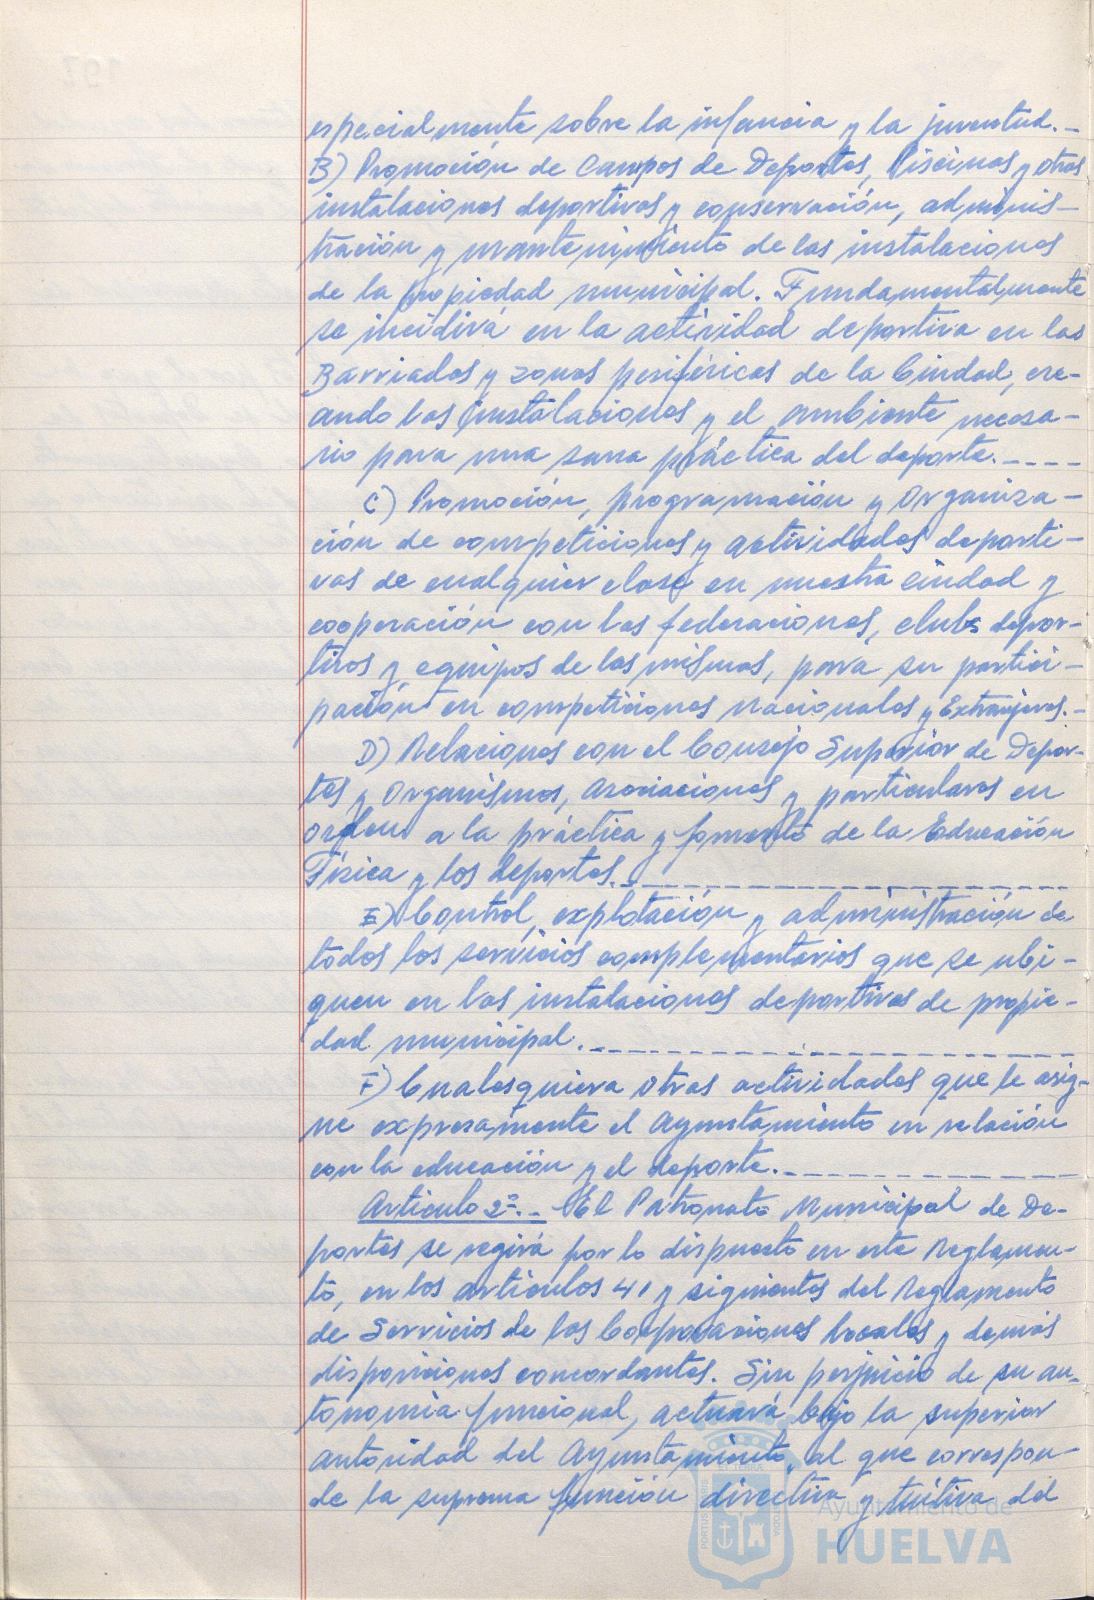 especialmente sobre la infancia y la juventud.-
B) Promoción de Campos de Deportes, Piscinas y otras
instalaciones deportivas y conservación, adminis-
tración y mantenimiento de las instalaciones
de la propiedad municipal. Fundamentalmente
se incidirá en la actividad deportiva en las
Barriadas y zonas periféricas de la Ciudad, cre-
ando las instalaciones y el ambiente necesa-
rio para una sana práctica del deporte.----
C) Promoción, programación y Organiza-
ción de competiciones y actividades deporti-
vas de cualquier clase en nuestra Ciudad y
cooperación con las federaciones, clubs depor-
tivos y equipos de las mismas, para su partici-
pación en competiciones nacionales y Extranjeras.-
D) Relaciones con el Consejo Superior de Depor-
tes y Organismos, Asociaciones y particulares en
orden a la práctica y fomento de la Educación
Física y los deportes.-----------------
E) Control, explotación y administración de
todos los servicios complementarios que se ubi-
quen en las instalaciones deportivas de propie-
dad municipal.--------------------
F) Cualesquiera otras actividades que le asig-
ne expresamente el Ayuntamiento en relación
con la educación y el deporte.------------
Artículo 2º.- El Patronato Municipal de De-
portes se regirá por lo dispuesto en este Reglamen-
to, en los artículos 41 y siguientes del Reglamento
de Servicios de las Corporaciones Locales y demás
disposiciones concordantes. Sin perjuicio de su au-
tonomía funcional, actuará bajo la superior
autoridad del Ayuntamiento, al que correspon-
de la suprema función directiva y tuitiva del
Ayuntamiento de
HUELVA